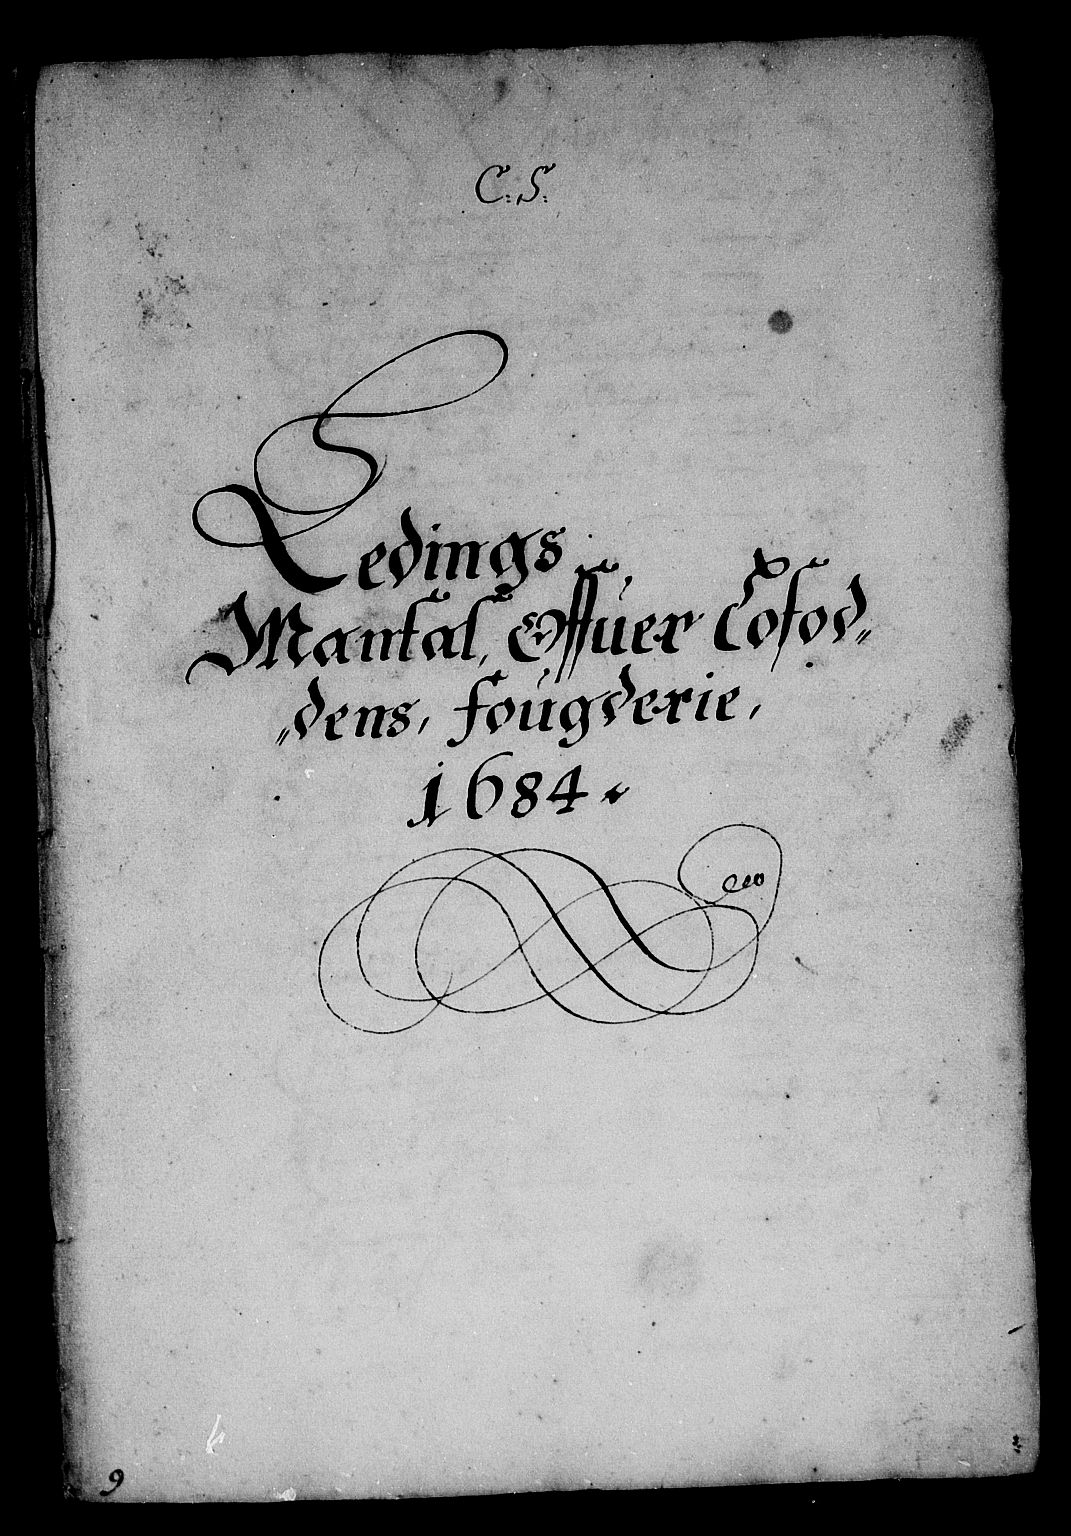 C: S:
Ledings
Mantal, Offuer Lofod„
„dens, fougderie,
1684
9